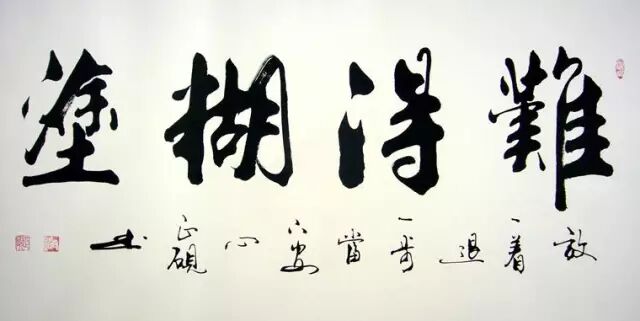 難得糊塗
放一着退一步當下安心 硯书